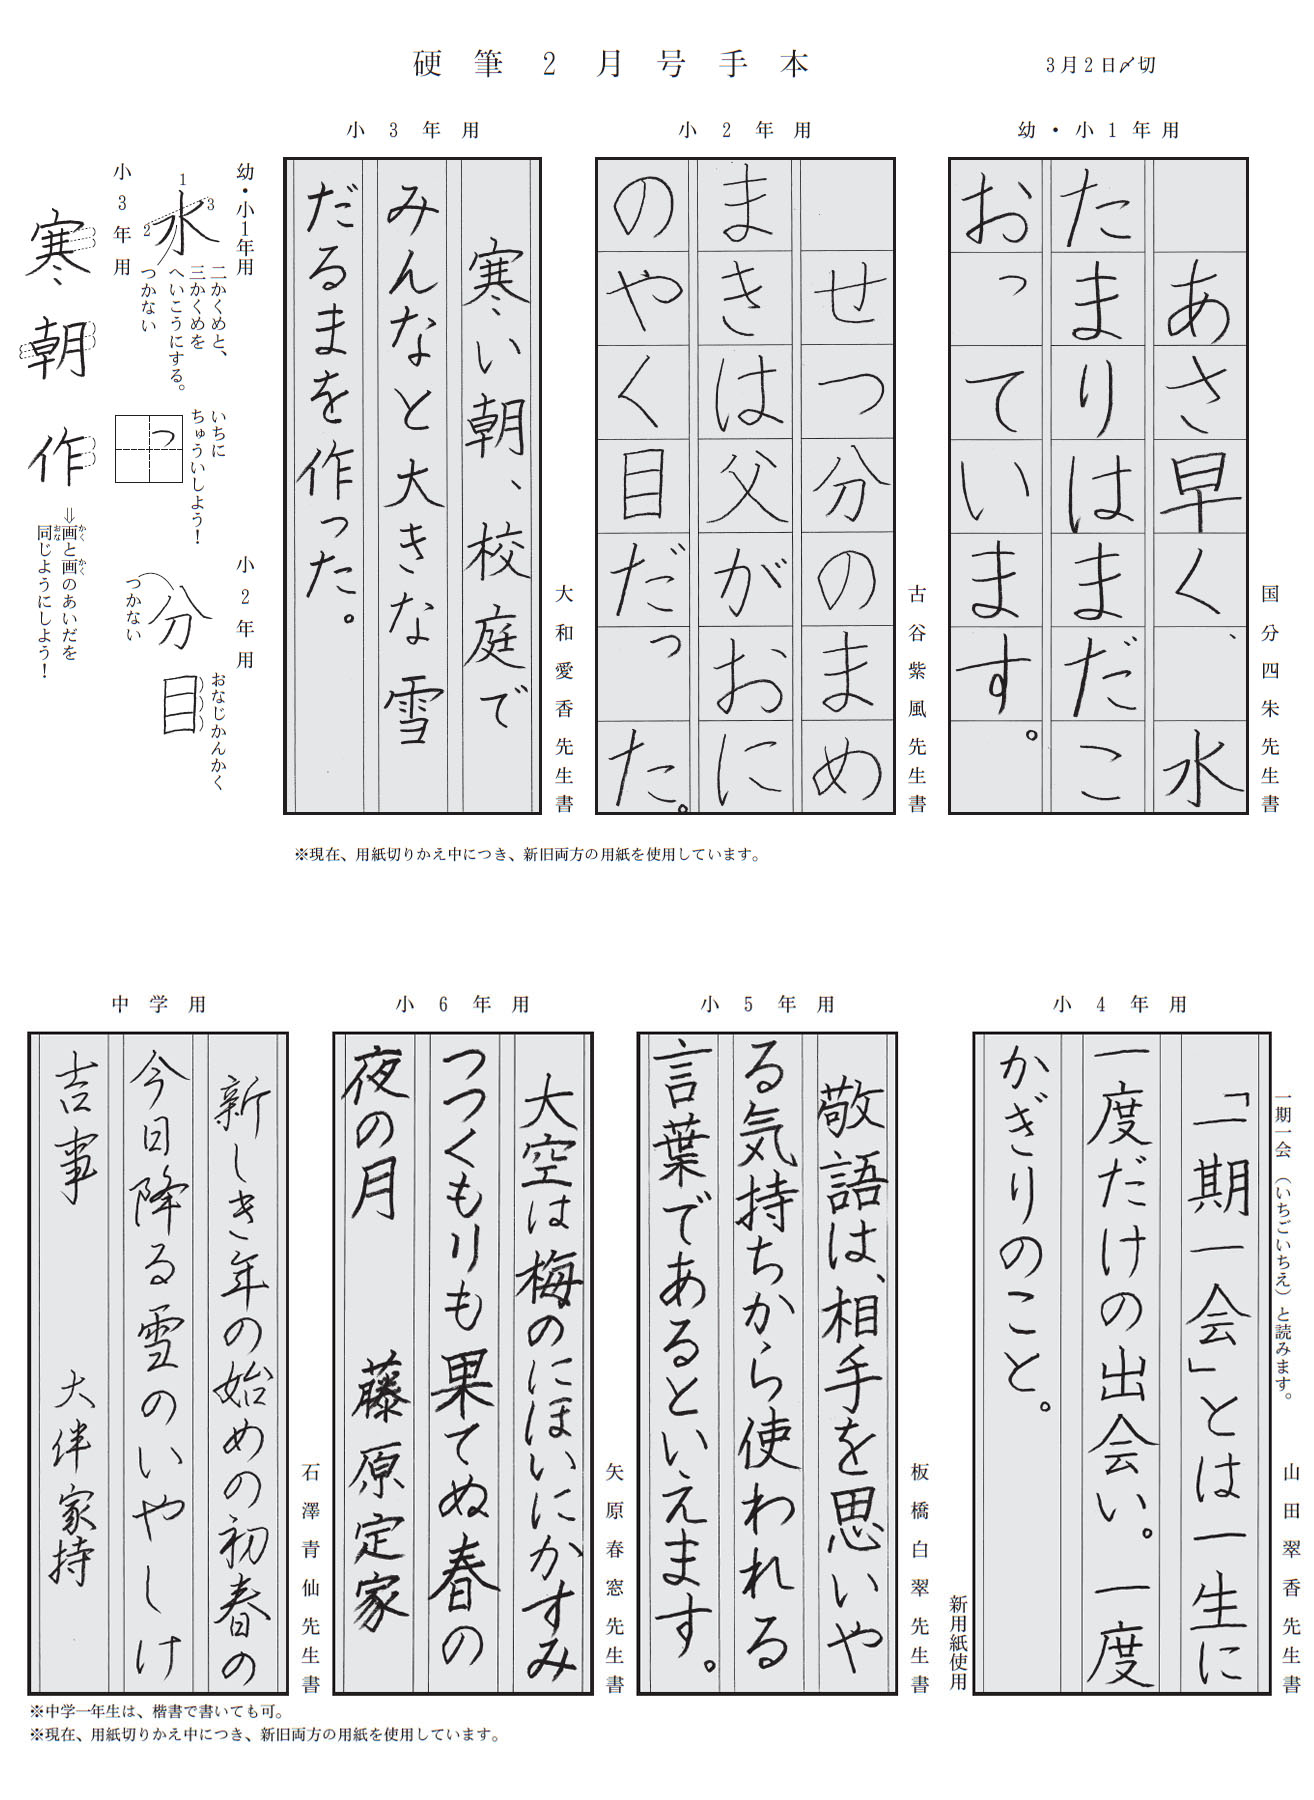 硬筆2月号手本
3月2日〆切
幼・小1年用
あさ早く、水
たまりはまだこ
おっています。
国分四朱先生書
小2年用
せつ分のまめ
まきは父がおに
のやく目だった。
古谷紫風先生書
小3年用
寒い朝、校庭で
みんなと大きな雪
だるまを作った。
大和愛香先生書
幼・小1年用
水
1
2
3
二かくめと、
三かくめを
へいこうにする。
つかない
いちに
ちゅういしよう！
っ
小2年用
分
つかない
目
おなじかんかく
小3年用
寒朝作
⇒画と画のあいだを
かく
かく
同じようにしよう！
おな
※現在、用紙切りかえ中につき、新旧両方の用紙を使用しています。
小4年用
一期一会（いちごいちえ）と読みます。
「一期一会」とは一生に
一度だけの出会い。一度
かぎりのこと。
山田翠香先生書
新用紙使用
小5年用
敬語は、相手を思いや
る気持ちから使われる
言葉であるといえます。
板橋白翠先生書
小6年用
大空は梅のにほいにかすみ
つつくもりも果てぬ春の
夜の月　藤原定家
矢原春窓先生書
中学用
新しき年の始めの初春の
今日降る雪のいやしけ
吉事　大伴家持
石澤青仙先生書
※中学一年生は、楷書で書いても可。
※現在、用紙切りかえ中につき、新旧両方の用紙を使用しています。